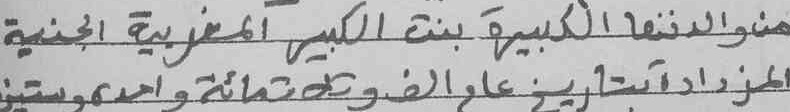 من والدتها الكبيرة بنت الكبير المغربية الجنسية
المزدادة بتاريخ عام الف وتلاتمائة واحد وستين